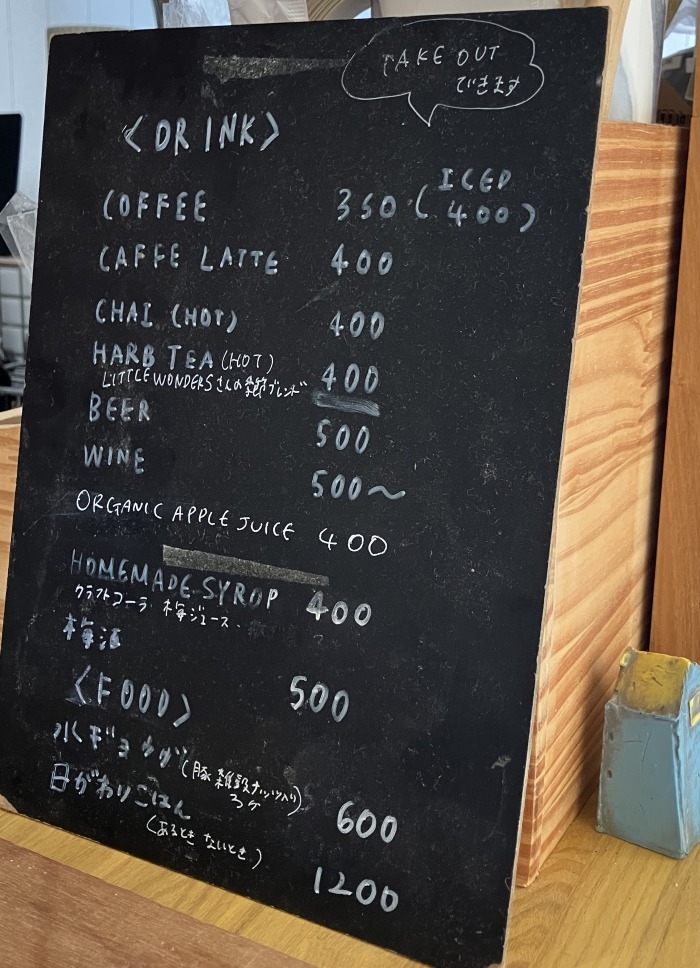 TAKE OUT
できます
<DRINK>
COFFEE 350 (ICED 400)
CAFFE LATTE 400
CHAI (HOT) 400
HARB TEA (HOT) 400
LITTLE WONDERSさんの ブレンド
BEER 500
WINE 500〜
ORGANIC APPLE JUICE 400
HOMEMADE SYROP 400
クラフトコーラ・梅ジュース・
梅酒 500
<FOOD>
水ギョウザ (豚 雑穀ナッツ入り) 600
5ケ
日がわりごはん 1200
(あるとき ないとき)